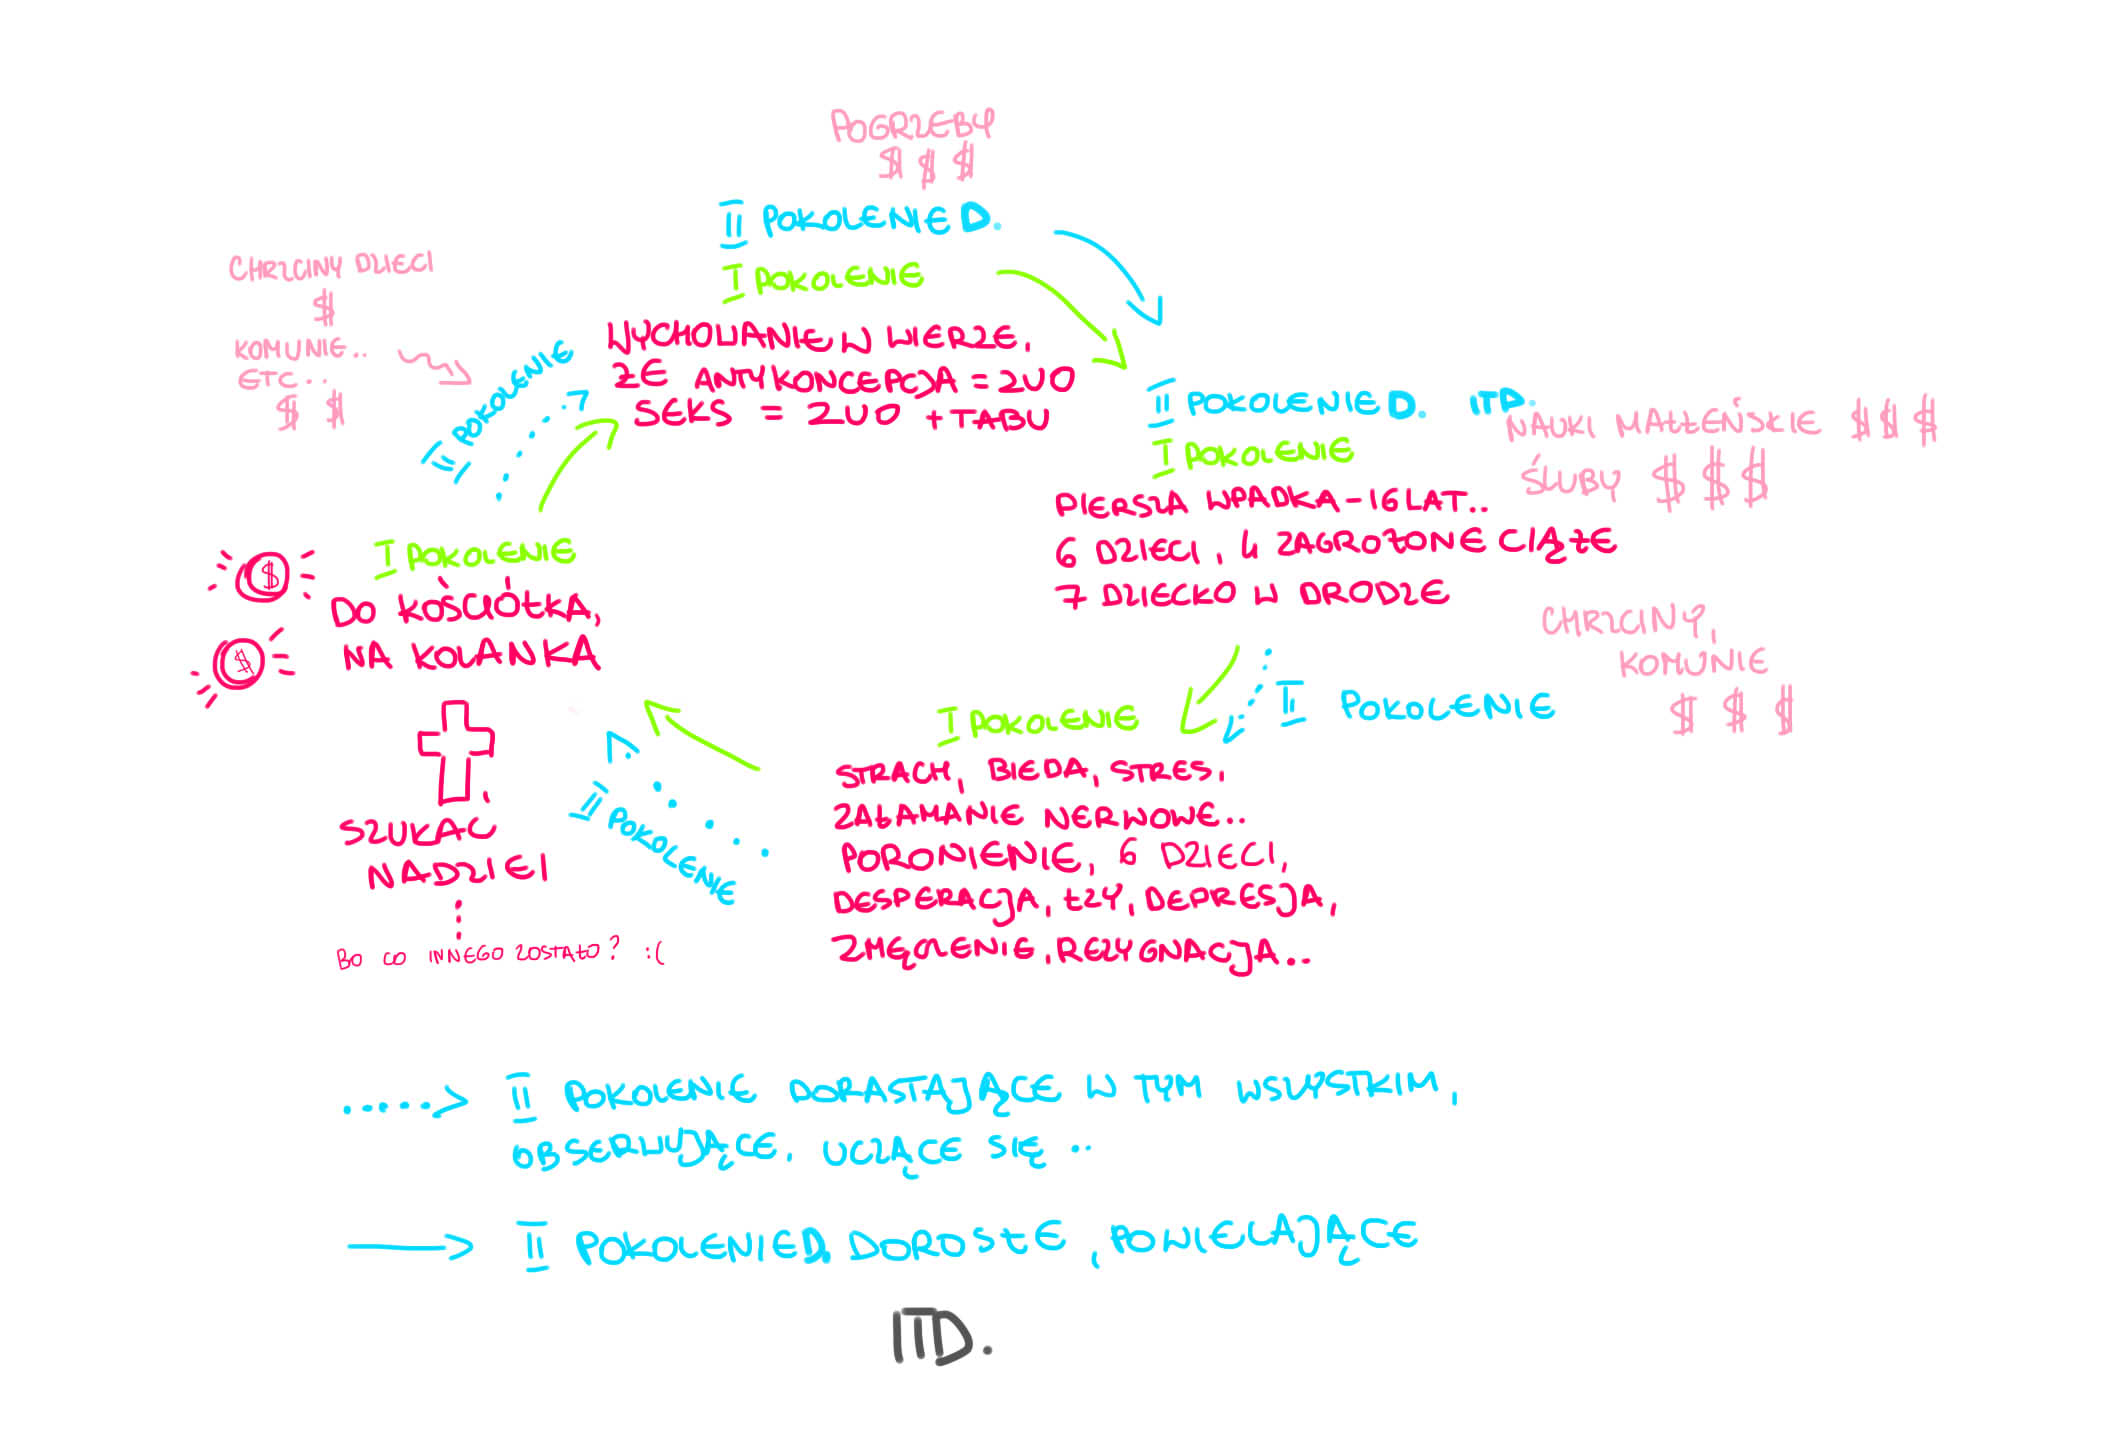 POGRZEBY
$ $ $
II POKOLENIE D.
I POKOLENIE
WYCHOWANIE W WIERZE,
ŻE ANTYKONCEPCJA = ZŁO
SEKS = ZŁO + TABU
CHRZCINY DZIECI
$
KOMUNIE..
ETC..
$ $
II POKOLENIE
II POKOLENIE D. ITD.
I POKOLENIE
NAUKI MAŁŻEŃSKIE $ $ $
ŚLUBY $ $ $
PIERSZA WPADKA - 16 LAT..
6 DZIECI, 4 ZAGROŻONE CIĄŻE
7 DZIECKO W DRODZE
CHRZCINY,
KOMUNIE
$ $ $
II POKOLENIE
I POKOLENIE
STRACH, BIEDA, STRES,
ZAŁAMANIE NERWOWE..
PORONIENIE, 6 DZIECI,
DESPERACJA, ŁZY, DEPRESJA,
ZMĘCZENIE, REZYGNACJA..
II POKOLENIE
I POKOLENIE
$
$
DO KOŚCIÓŁKA,
NA KOLANKA
SZUKAĆ
NADZIEI
BO CO INNEGO ZOSTAŁO? :(
II POKOLENIE DORASTAJĄCE W TYM WSZYSTKIM,
OBSERWUJĄCE, UCZĄCE SIĘ ..
II POKOLENIE D. DOROSŁE, POWIELAJĄCE
ITD.